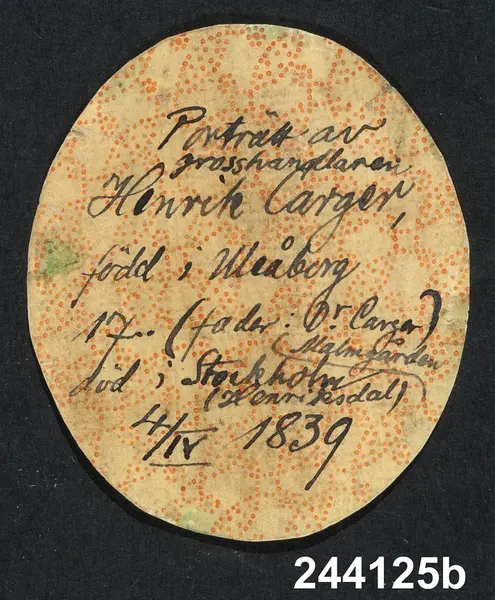 Porträtt av
grosshandlaren
Henrik Carger,
född i Uleåborg
17.. (fader: Dr Carger)
(Malmgården
död i Stockholm
(Henriksdal)
4/IV 1839
244125b